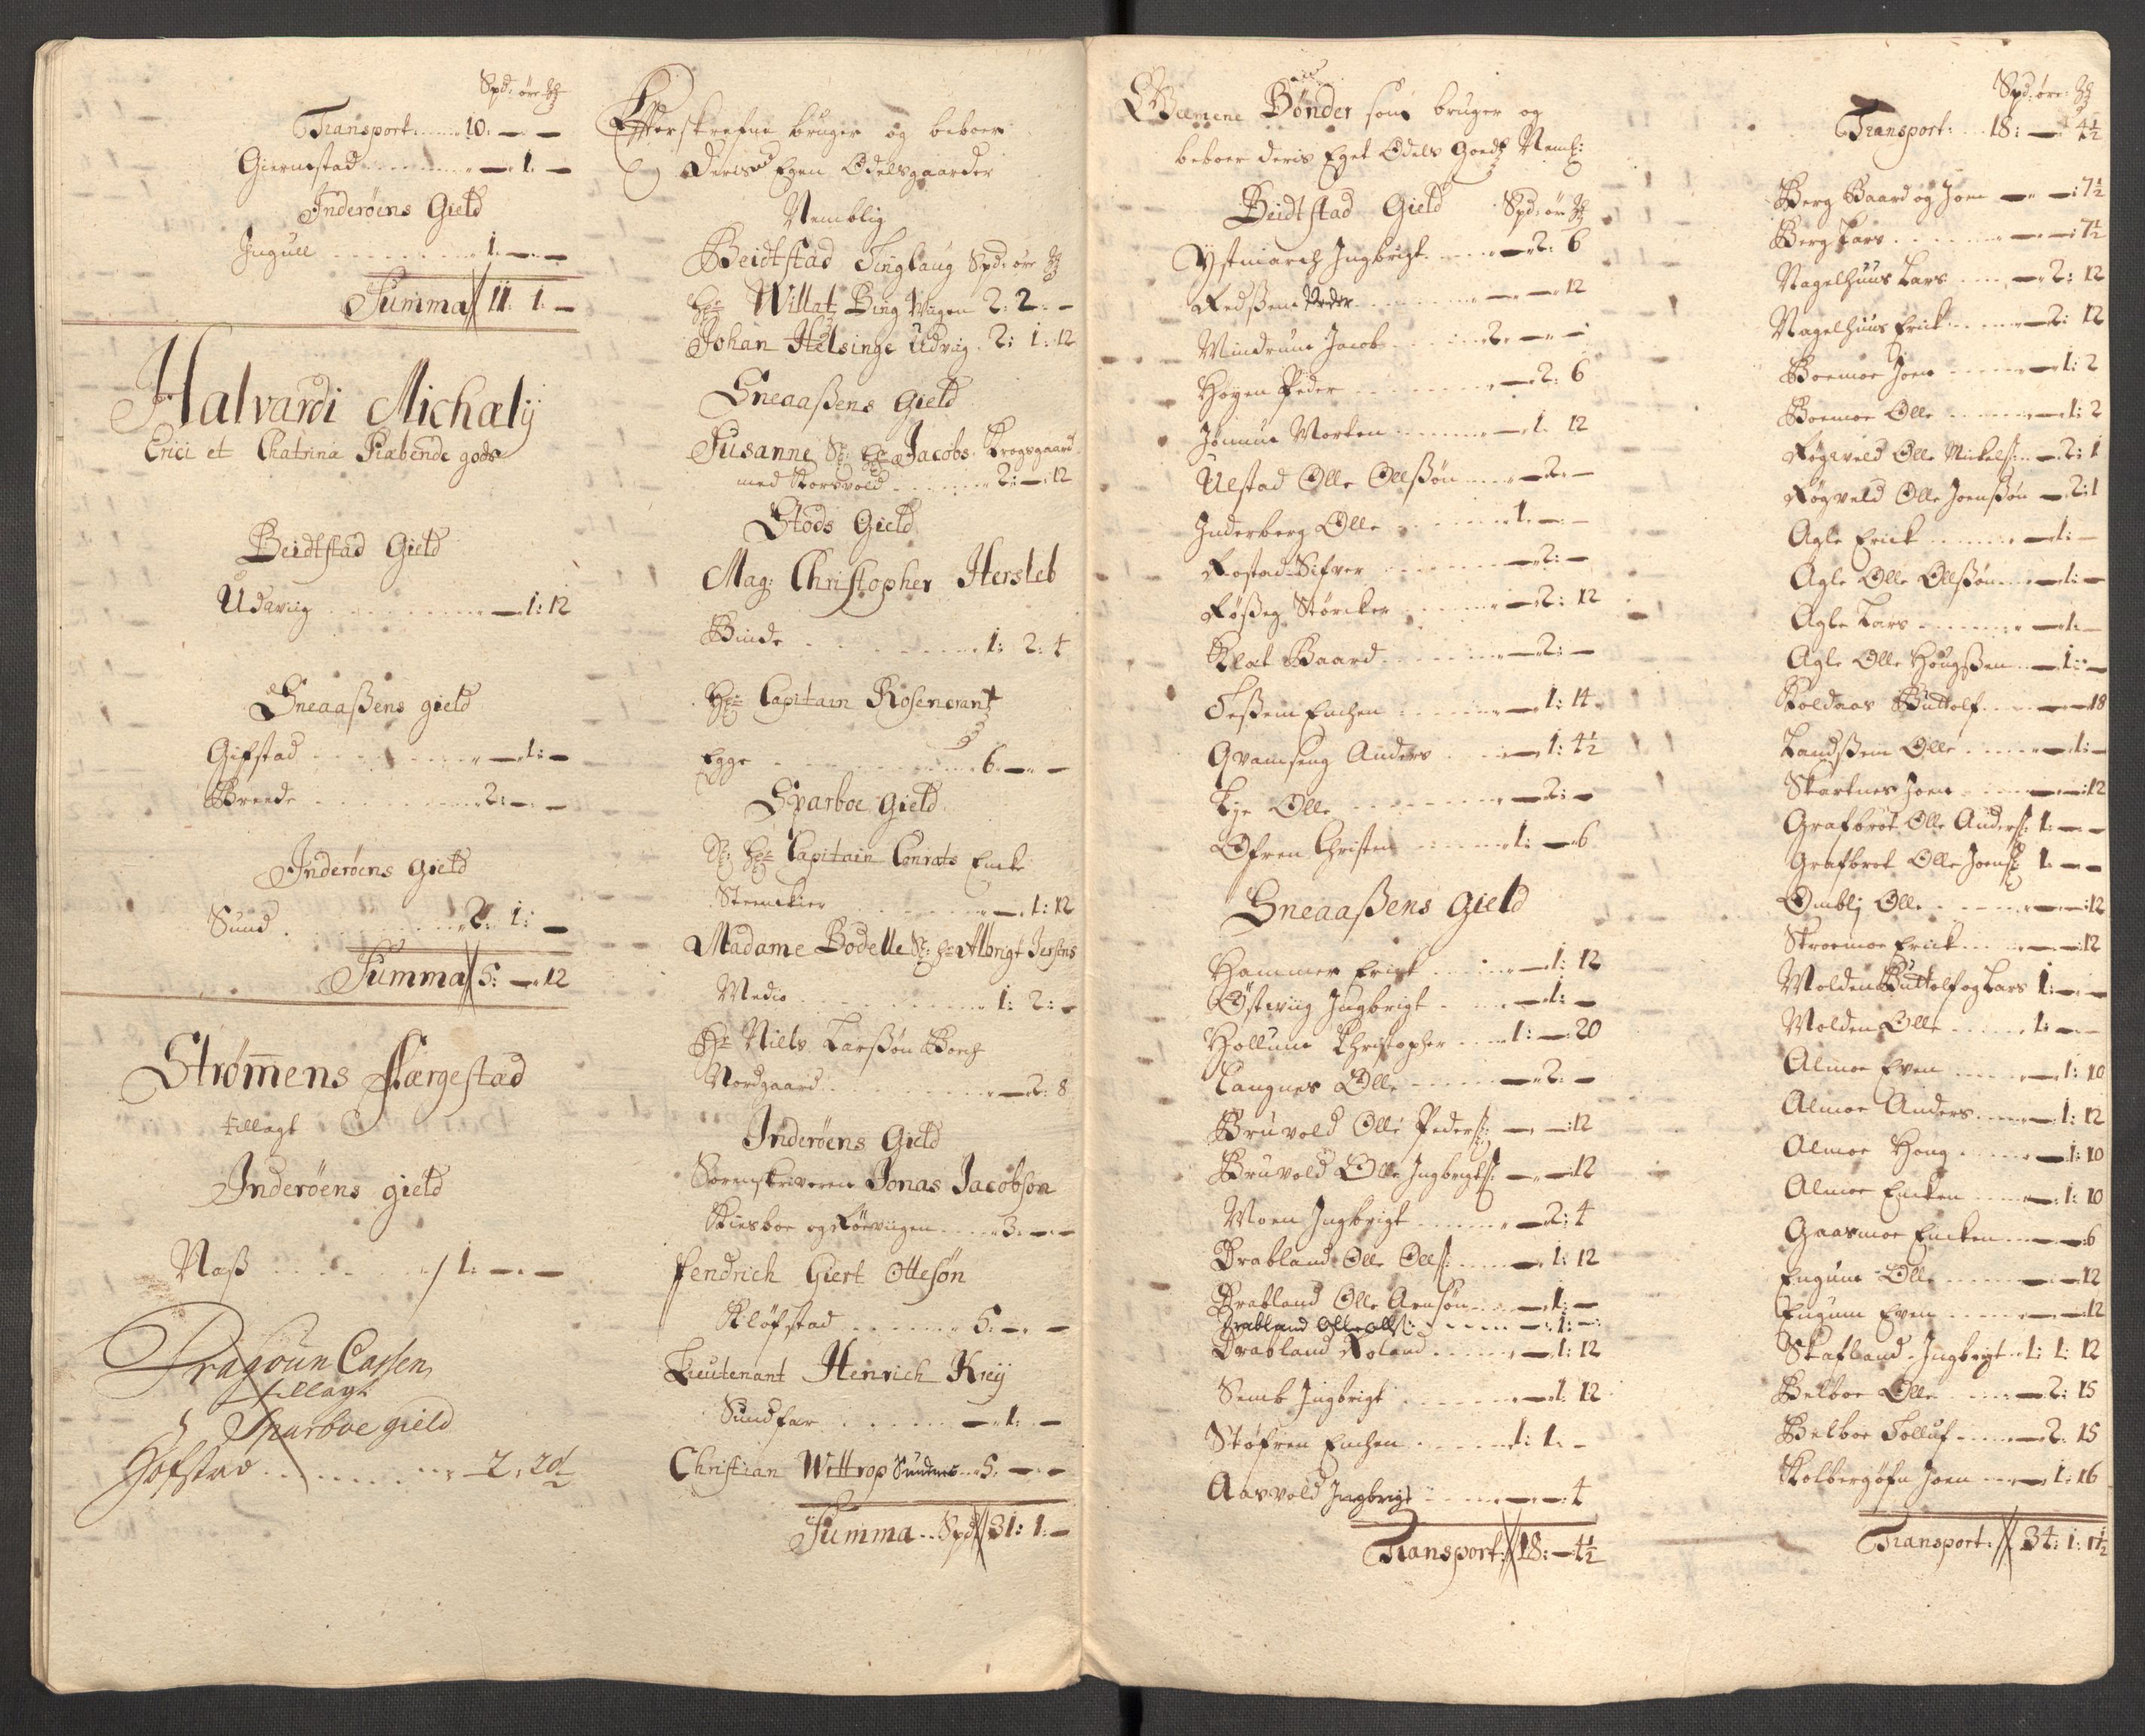 Spd: øre ₰
Transport: 10: — —
Giermstad — 1. —
Inderøens Gield
Ingull 1. — —
Summa 11: 1: —
Halvardi Michaelij
Erici et Chatrina Præbende gods
Beidtstad Gield
Udviig — 1: 12
Sneaaßens gield
Gifstad — 1: —
Breede 2: — —
Inderøens gield
Sund 2: 1: —
Summa 5: — 12
Strøm̄ens Færgestad
tillagt
Inderøens gield
Naß 1: — —
Dragoun Cassen
tillagt
Sparboe gield
Hofstad — 2:
Efterskrefne bruger og beboer
deris Egen Odelsgaarder
Nemblig
Beidtstad Tinglaug Spd: øre ₰
Hr: Willat Bing Wagen 2: 2: —
Johan Helsinge Udviig 2: 1: 12
Sneaaßens Gield
Susanne Sl: Hr Jacobs Krogsgaard
med Korsvold 2: — 12
Stods Gield
Mag: Christopher Hersleb
Binde 1: 2: 4
Hr: Capitain Rosencrantz
Egge 6. — —
Sparboe Gield
Sl: Hr: Capitain Conrats Encke
Steenckier — 1: 12
Madame Bodelle Sl: Hr Albrigt Jersens
Medio 1: 2: —
Hr Niels Larßøn Borch
Nordgaard — 2: 8
Inderøens Gield
Sorenskriveren Jonas Jacobson
Kiesboe og Røeviigen 3. — —
Fendrich Giert Ottesøn
Kløfstad 5. — —
Lieutenant Henrich Kreij
Sundfær — 1. —
Christian Wittrop Sundnes 5. — —
Summa Spd 31: 1: —
Gemene Bønder som bruger og
beboer deris Eget Odels Goedz Neml:
Beidtstad Gield Spd: øre ₰
Ystmarch Ingbrigt — 2: 6
Redßem Peder — — 12
Windrum Jacob 2. — —
Høyen Peder — 2: 6
Jønnum Morten — 1. 12
Ulstad Olle Ollßøn — 2. —
Inderberg Olle 1. — —
Rostad Sifver — 2: —
Røßeg Størcker — 2: 12
Klæt Baard — 2: —
Teßem Enchen — 1: 14
Qvamseng Anders — 1: 4½
Lye Olle — 2: —
Øfren Christen 1: — 6
Sneaaßens gield
Hammer Erick — 1: 12
Østviig Ingbrigt — 1: —
Hollum Christopher 1: — 20
Langnes Olle — 2. —
Bruvold Olle Peders: — — 12
Bruvold Olle Ingbrigts: — — 12
Moen Ingbrigt — 2: 4
Brabland Olle Olls: — 1: 12
Brabland Olle Arnsøn — 1: —
Brabland Olle Olls: — 1: —
Brabland Roland — 1: 12
Semb Ingbrigt — 1: 12
Støfren Enchen 1: 1. —
Aasvold Ingbrigt — — 4
Transport: 18: — 4½
Spd: øre: ₰
Transport: 18: — 4½
Berg Baard og Joen — — 7½
Berg Lars — — 7½
Nagelhuus Lars — 2: 12
Nagelhuus Erick — 2: 12
Boemoe Joen — 1: 2
Boemoe Olle — 1: 2
Røgveld Olle Nickels: — 2: 1
Røgveld Olle Joenßøn — 2: 1
Agle Erick — 1: —
Agle Olle Ollßøn — 1: —
Agle Lars — 1: —
Agle Olle Hougßen — 1: —
Koldaas Buttolf — — 18
Landßem Olle — 1: —
Skartnes Joen — — 12
Grafbrot Olle Anders: 1: — —
Grafbrot Olle Joens: 1. — —
Omblj Olle — — 12
Stroemoe Erick — — 12
Molden Buttolf og Lars 1: — —
Molden Olle 1: — —
Almoe Even — 1: 10
Almoe Anders — 1: 12
Almoe Houg — 1: 10
Almoe Encken — 1: 10
Gaasmoe Encken — — 6
Engum Olle — — 12
Engum Even — — 12
Skafland Ingbrigt 1: 1: 12
Belboe Olle — 2: 15
Belboe Tolluf — 2: 15
Kolbergøfn Joen — 1: 16
Transport: 34: 1: 1½